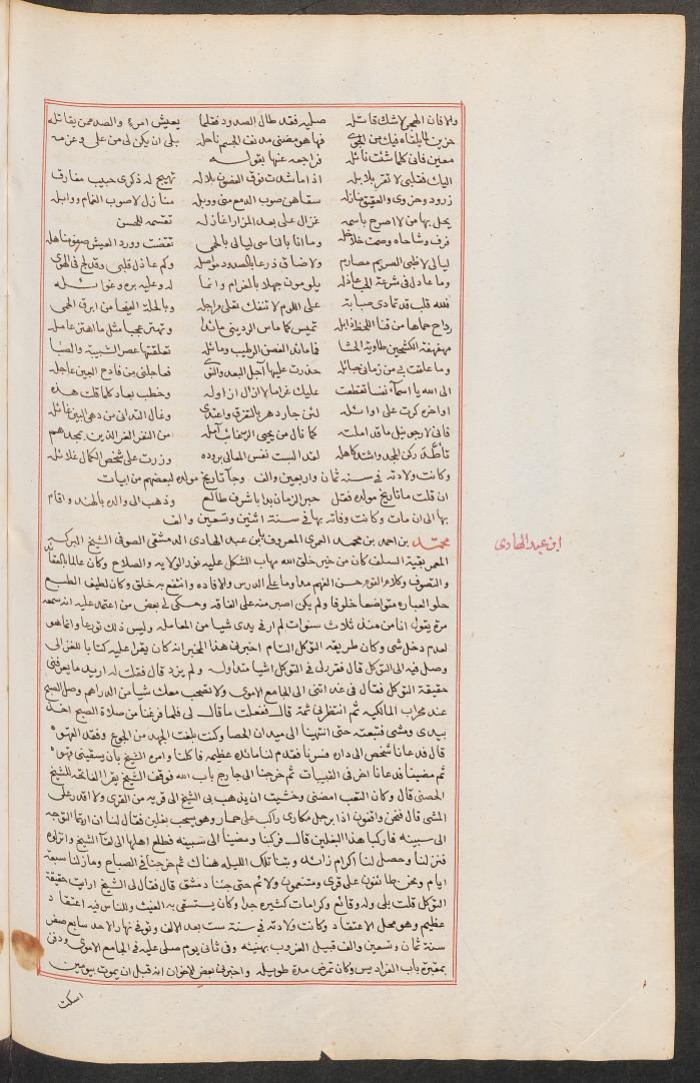 ولا فان الهجر لا شك قاتله صليه فقد طال الصدود فقلما يعيش امرؤ والصد ممن يقاتله
حزين لما يلقاه فيك من الجوى فها هو مضنى مدنف الجسم ناحله بلى ان يكن لى من على وعزمه
معين فانى كلما شئت نائله فراجعه عنها بقوله
اليك فقلبى لا تقر بلابله اذا ما شدت فوق الغصون بلابله تهيج له ذكرى حبيب مفارق
زرود وحزوى والعقيق منازله سقاهن صوب الدمع منى ووبله منازل لا صوب الغمام ووابله
يحل بها من لا اصرح باسمه غزال على بعد المزار اغازله تقسمه للحسن
فرف وشاحاه وصمت خلاخله وما انا بالناسى ليالى بالحمى تقضت وورد العيش صفو مناهله
ليالى لا ظبى الصريم مصارم ولا ضاق ذرعا بالصدود مواصله وكم عاذل قلبى وقد لج فى الهوى
وما عادل فى شرعة الحب عاذله يلومون جهلا بالغرام وانما له وعليه بره وغوائله
فلله قلب قد تمادى صبابة على اللوم لا تنفك تغلى مراجله وبالحلة الفيحا من ابرق الحمى
رداح حماها من قنا اللحظ ذابله تميس كما ماس الردينى مائدا وتهتز عجبا مثل ما اهتز عامله
مهفهفة الكشحين طاوية الحشا فما مائد الغصن الرطيب ومائله تعلقتها عصر الشبيبة والصبا
وما علقت بى من زمانى حبائله حذرت عليها آجل البعد والنوى فعاجلنى من فادح البين عاجله
الى الله يا اسماء نفسا تقطعت عليك غراما لا ازال ازاوله وخطب بعاد كلما قلت هذه
اواخره كرت على اوائله لئن جار دهر بالتفرق واعتدى وغال التدانى من دهى البين غائله
فانى لارجو نيل ما قد املته كما نال من يحيى الرغائب آمله من النفر الغر الذين بمجدهم
تأطد ركن المجد واشتد كاهله لقد البست نفس المعالى بروده وزرت على شخص الكمال غلائله
وكانت ولادته فى سنه ثمان واربعين والف وجآ تاريخ مولده لبعضهم من ابيات
ان قلت ما تاريخ مولده فقل حبر الزمان بدا باشرف طالع وذهب الى والده بالهند واقام
بها الى ان مات وكانت وفاته بها فى سنة اثنين وتسعين والف
محمد بن احمد بن محمد العمرى المعروف بابن عبد الهادى الدمشقى الصوفى الشيخ البركه
ابن عبد الهادى
المعمر بقية السلف كان من خير خلق الله مهاب الشكل عليه نور الولايه والصلاح وكان عالما بالعقائد
والتصوف وكلام القوم حسن الفهم مداوما على الدرس والافاده وانتفع به خلق وكان لطيف الطبع
حلو العباره متواضعا خلوقا ولم يكن اصبر منه على الفاقه وحكى لى بعض من اعتمد عليه انه سمعه
مرة يقول انا من منذ ثلاث سنوات لم ار فى يدى شيا من المعامله وليس ذلك تورعا وانما هو
لعدم دخل شى وكان طريقه التوكل التام اخبرنى هذا المخبر انه كان يقرا عليه كتابا للغزالى
وصل فيه الى التوكل قال فقرر لى فى التوكل اشيا متداوله ولم يزد قال فقلت له اريد ما يعرفنى
حقيقة التوكل فقال لى فى غد ائتنى الى الجامع الاموى ولا تصحب معك شيا من الدراهم وصل الصبح
عند محراب المالكيه ثم انتظرنى ثمة قال ففعلت ما قال لى فلما فرغنا من صلاة الصبح اخذ
بيدى ومشى فتبعته حتى انتهينا الى ميدان الحصا وكنت بلغت الجهد من الجوع وفقد القهوة
قال فدعانا شخص الى داره فسرنا فقدم لنا مائدة عظيمه فاكلنا وامره الشيخ بأن يسقينى قهوة
ثم مضينا فدعانا اخر فى القبيبات ثم خرجنا الى خارج باب الله فوقف الشيخ يقرا الفاتحة للشيخ
الحصنى قال وكان التعب امضنى وخشيت ان يذهب بى الشيخ الى قريه من القرى ولا اقدر على
المشى قال فنحن واقفون اذا برجل مكارى راكب على حمار وهو يسحب بغلين فقال لنا ان اردتما التوجه
الى سبينه فاركبا هذا البغلين قال فركبنا ومضينا الى سبينه فطلع اهلها الى لقآ الشيخ وانزلوه
فنزلنا وحصل لنا اكرام زائد وبتنا تلك الليله هناك ثم خرجنا فى الصباح وما زلنا سبعة
ايام ونحن طائفون على قرى ومتنعمون ولائم حتى جئنا دمشق قال فقال لى الشيخ ارايت حقيقة
التوكل قلت بلى وله وقائع وكرامات كثيره جدا وكان يستسقى به الغيث وللناس فيه اعتقاد
عظيم وهو محل الاعتقاد وكانت ولادته فى سنة ست بعد الالف وتوفى نهار الاحد سابع صفر
سنة ثمان وتسعين والف قبيل الغروب بهنيئة وفى ثانى يوم صلى عليه فى الجامع الاموى ودفن
بمقبرة باب الفراديس وكان تمرض مدة طويله واخبرنى بعض الاخوان انه قبل ان يموت بيومين
اسكت